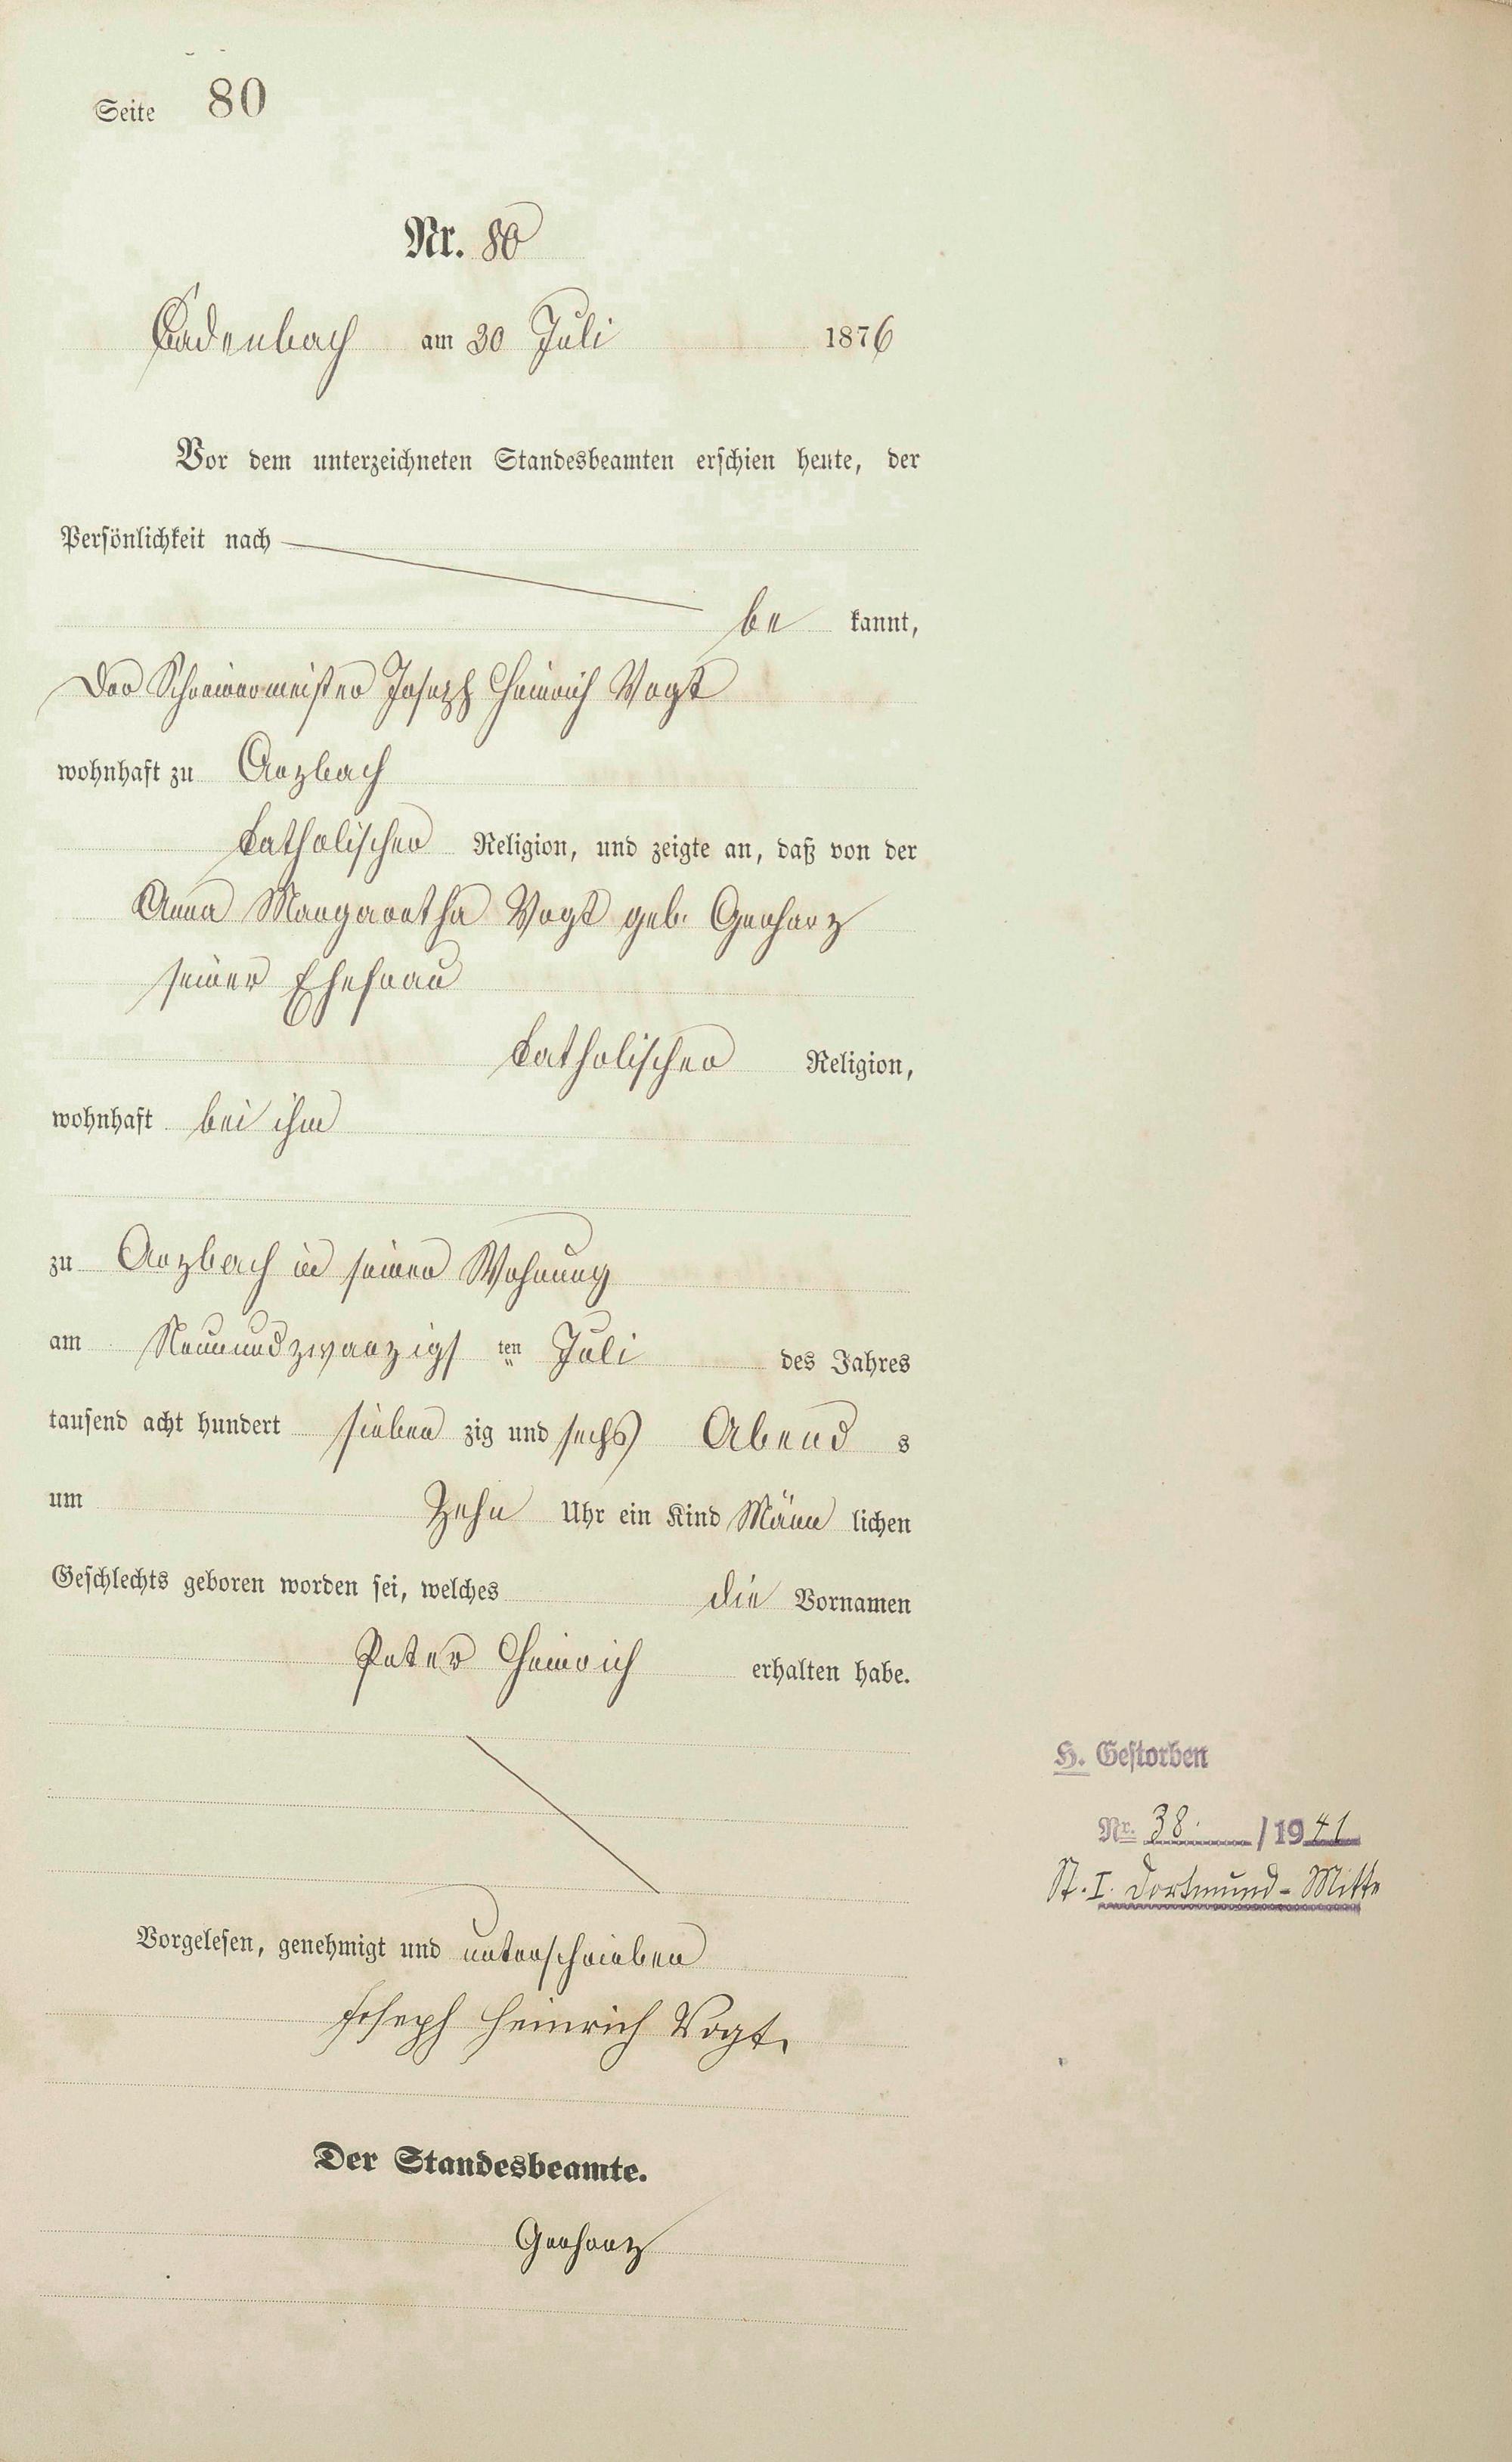 Seite 80
Nr. 80
Cadenbach am 30 Juli 1876
Vor dem unterzeichneten Standesbeamten erschien heute, der
Persönlichkeit nach
be kannt,
der Schreinermeister Joseph Heinrich Vogt
wohnhaft zu Arzbach
katholischer Religion, und zeigte an, daß von der
Anna Margaretha Vogt geb. Gerharz
seiner Ehefrau
katholischer Religion,
wohnhaft bei ihm
zu Arzbach in seiner Wohnung
am Neunundzwanzigs ten Juli des Jahres
tausend acht hundert sieben zig und sechs Abend s
um Zehn Uhr ein Kind Männ lichen
Geschlechts geboren worden sei, welches die Vornamen
Peter Heinrich erhalten habe.
Vorgelesen, genehmigt und unterschrieben
Joseph Heinrich Vogt.
Der Standesbeamte.
Gerharz
H. Gestorben
Nr. 38 /1941
St. I. Dortmund-Mitte